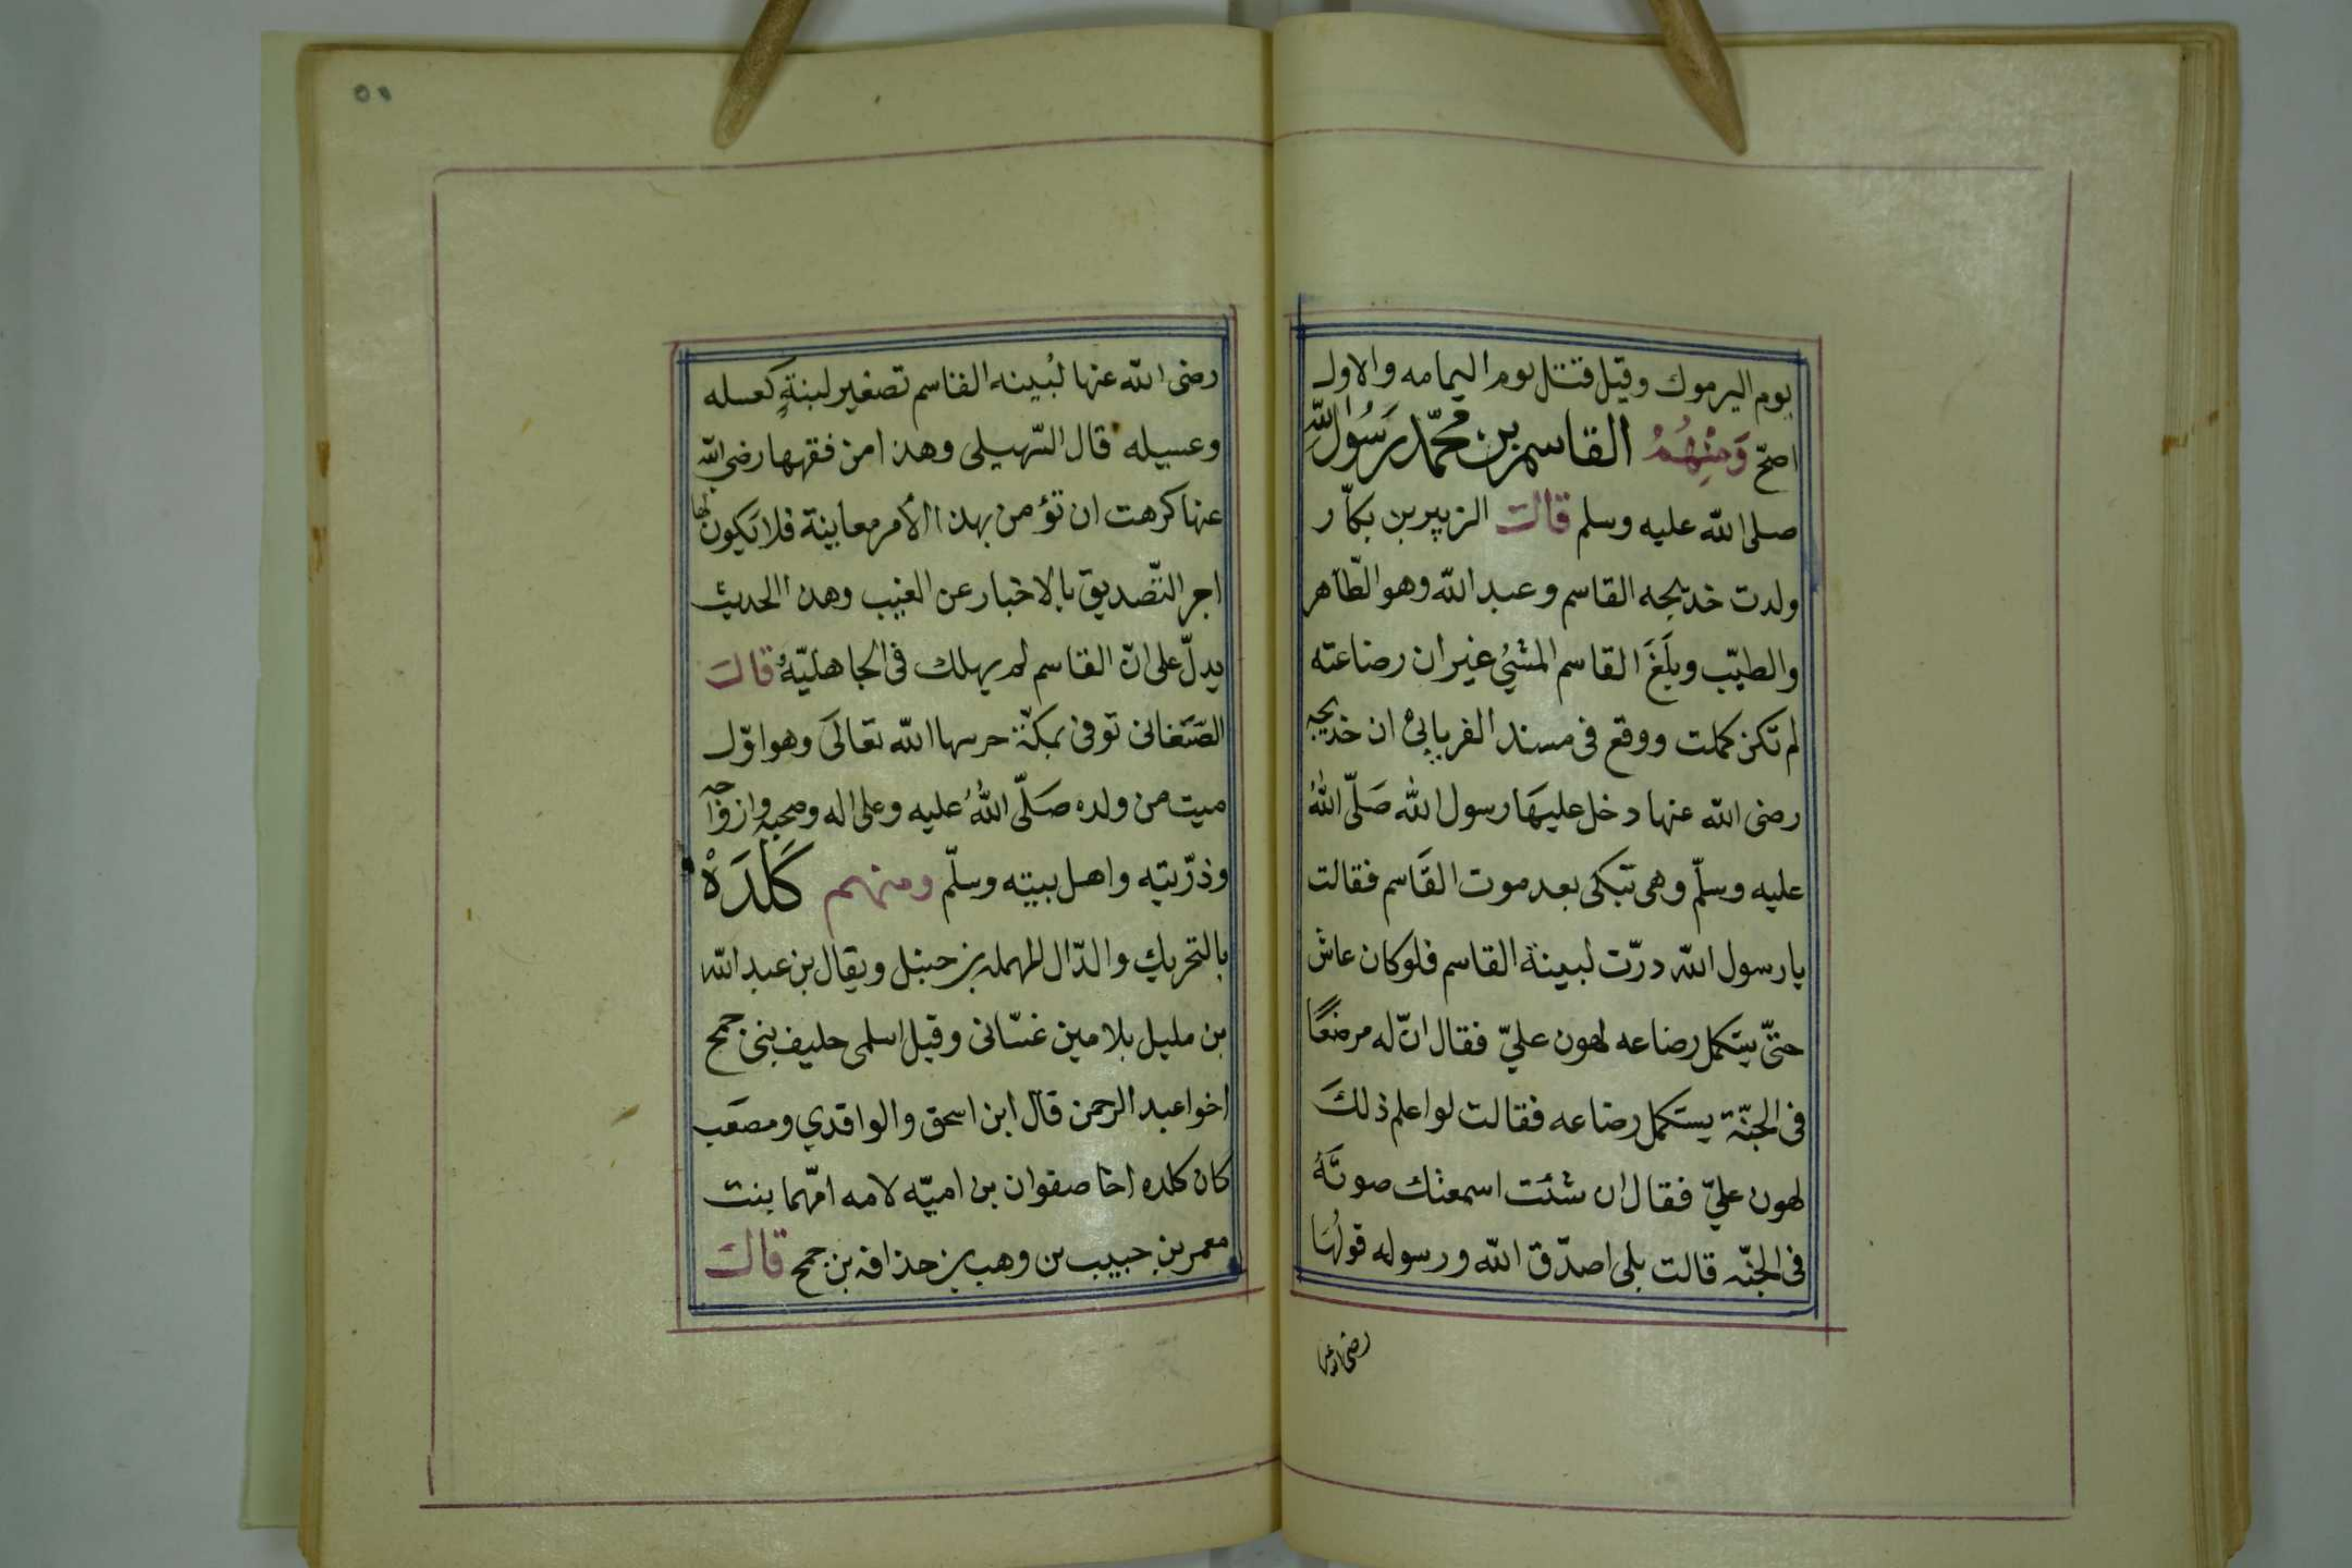 يوم اليرموك وقيل قتل يوم اليمامه والاول
اصحّ وَمِنْهُمْ القاسم بن محمّد رَسُول اللّه
صلى اللّه عليه وسلم قالت الزبير بن بكّار
ولدت خديجه القاسم وعبد اللّه وهو الطّاهر
والطيّب وبلَغَ القاسم المشيُ غير ان رضاعته
لم تكن كملت ووقع فى مسند الفريابىْ ان خديجه
رضى اللّه عنها دخل عليهَا رسول اللّه صَلّى اللّهُ
عليه وسلّم وهى تبكى بعد موت القَاسم فقالت
يا رسول اللّه درّت لبينة القاسم فلو كان عاش
حتىّ يستكمل رضاعه لهون عليّ فقال انّ له مرضعًا
فى الجنّة يستكمل رضاعه فقالت لو اعلم ذلكَ
لهون عليّ فقال ان شئت اسمعتك صوتَهُ
فى الجنّه قالت بلى اصدّق اللّه ورسوله قولُهَا
رضى الله عنها
٥١
رضى اللّه عنها لبُينه القاسم تصغير لبنةٍ كعسله
وعسيله قال السّهيلى وهذا من فقهها رضى اللّه
عنها كرهت ان تؤمن بهذا الأمر معاينة فلا يكون لها
اجر التّصديق بالاخبار عن الغيب وهذا الحديث
يدلّ على انّ القاسم لم يهلك فى الجاهليّةُ قالت
الصّغانى توفى بمكّة حرسها اللّه تعالىَ وهو اوّل
ميت من ولده صَلّى اللّهُ عليه وعلى اله وصحبه وازواجه
وذرّيته واهل بيته وسلّم ومنهم كَلَدَهْ
بالتحريك والدّال المهمله بن حنبل ويقال بن عبد اللّه
بن مليل بلامين غسّانى وقيل اسلمى حليف بنى جمح
اخوا عبد الرحمن قال ابن اسحق والواقدي ومصعَب
كان كلده اخا صفوان بن اميّه لامه امّهما بنت
معمر بن حبيب بن وهب بن حذافه بن جمح قالت